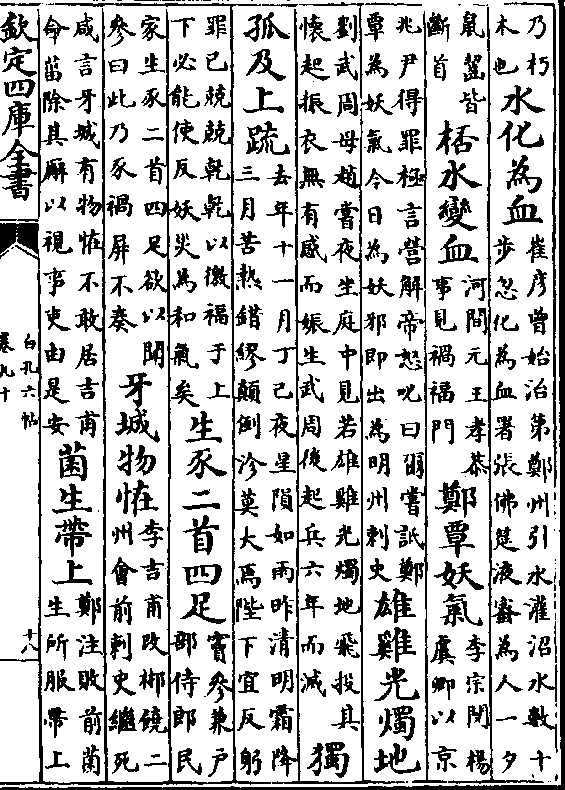 乃朽木也水化為血崔彥曾始治第鄭州引水灌沼水數十步忽化為血署張佛筵液釜為人一夕
鼠齧皆斷首栝水變血河間元王孝恭事見禍福門鄭覃妖氣李宗閔楊虞卿以京
兆尹得罪極言營解帝怒叱曰爾嘗詆鄭覃為妖氣今日為妖邪即出為明州刺史雄雞光燭地
劉武周母趙嘗夜坐庭中見若雄雞光燭地飛投其懷起振衣無有感而娠生武周後起兵六年而滅獨
孤及上疏去年十一月丁巳夜星隕如雨昨清明霜降三月苦熱錯繆顛倒沴莫大焉陛下宜反躬
罪已兢兢乾乾以徼福于上下必能使反妖災為和氣矣生豕二首四足竇參兼戶部侍郎民
家生豕二首四足欲以聞參曰此乃豕禍屏不奏牙城物怪李吉甫改郴饒二州會前刺史繼死
咸言牙城有物怪不敢居吉甫命菑除其廨以視事吏由是安菌生帶上鄭注敗前菌生所服帶上
欽定四庫全書
白孔六帖
卷九十
十八